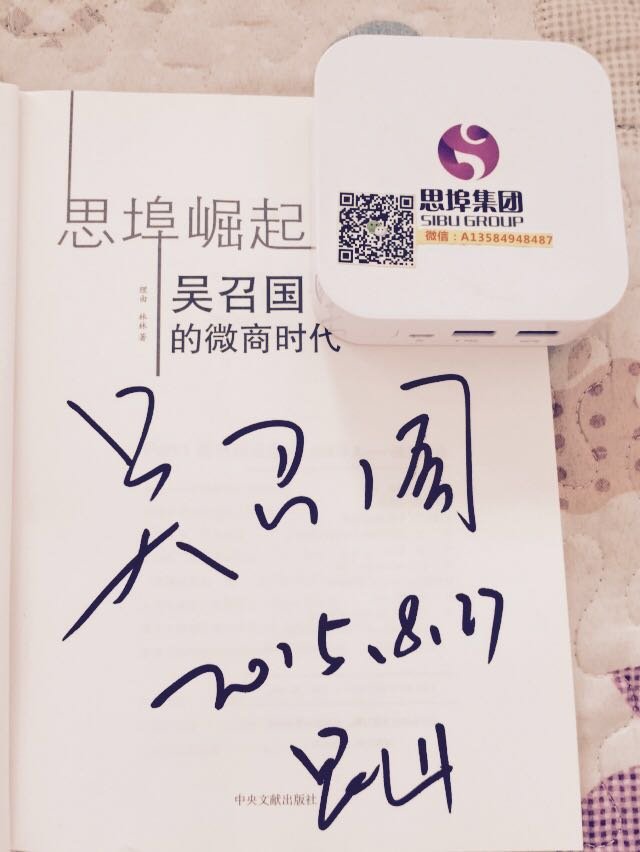 思埠集团
SIBU GROUP
微信：A13584948487
思埠崛起
吴召国
的微商时代
理由 林林 著
吴召国
2015.8.27
昆山
中央文献出版社